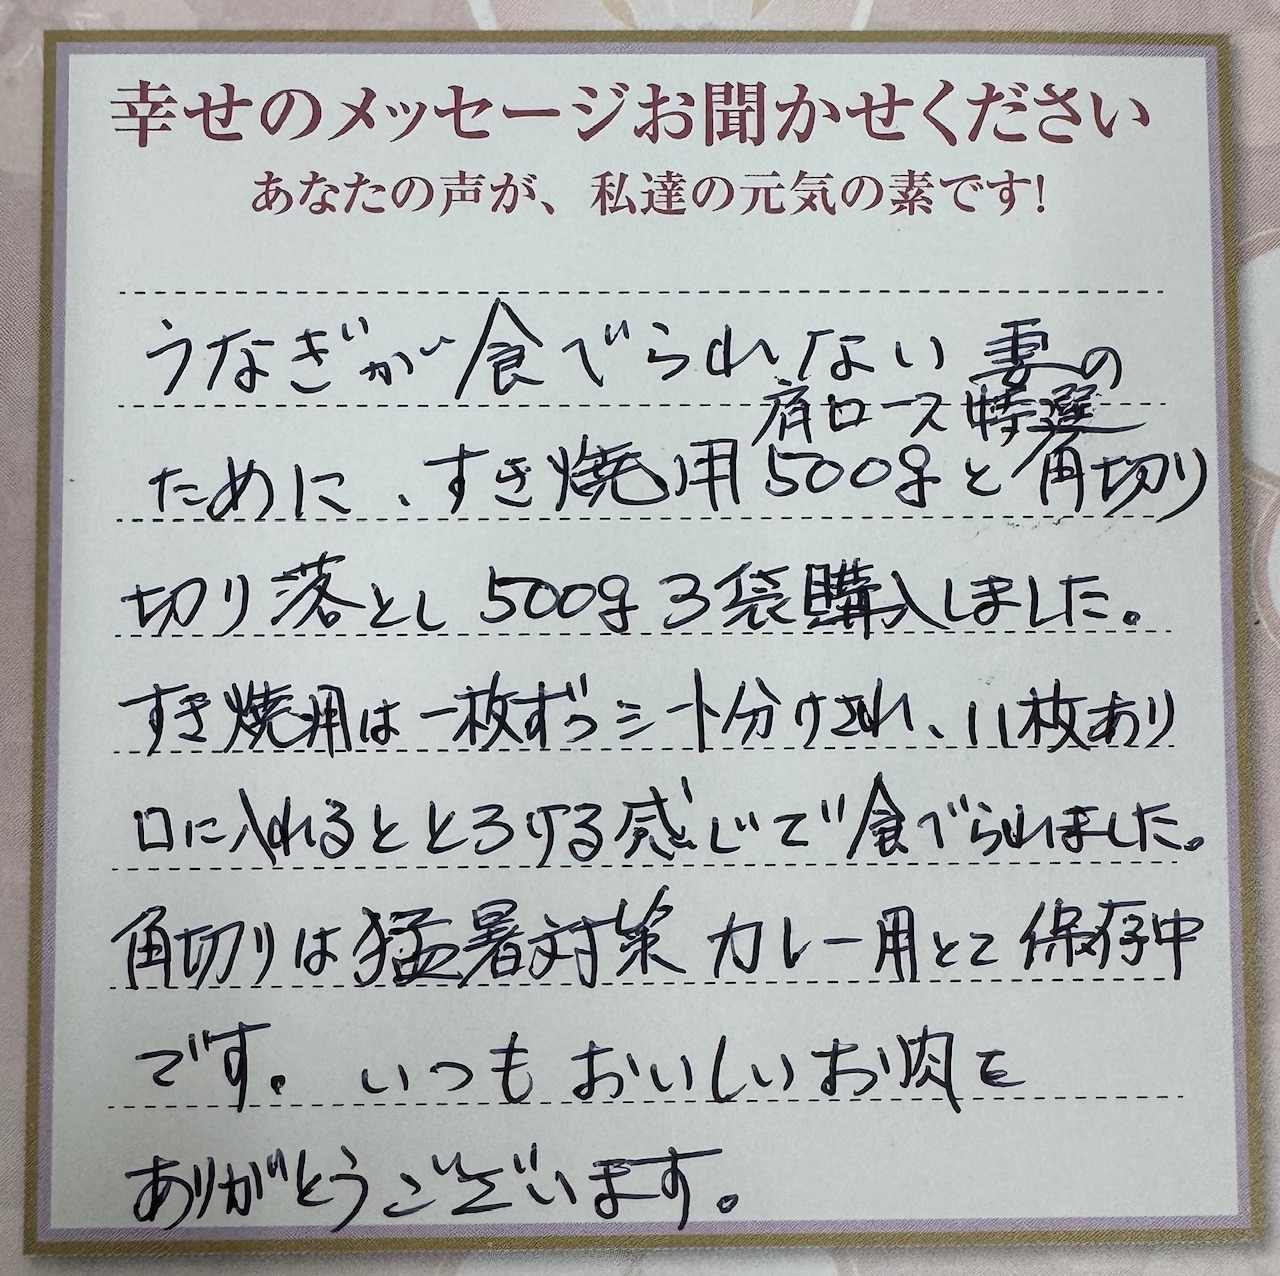 幸せのメッセージお聞かせください
あなたの声が、私達の元気の素です!
うなぎが食べられない妻の
肩ロース特選
ために、すき焼用500gと角切り
切り落とし500g3袋購入しました。
すき焼用は一枚ずつシート分けされ、11枚あり
口に入れるととろける感じで食べられました。
角切りは猛暑対策カレー用とこ保存中
です。いつもおいしいお肉を
ありがとうございます。